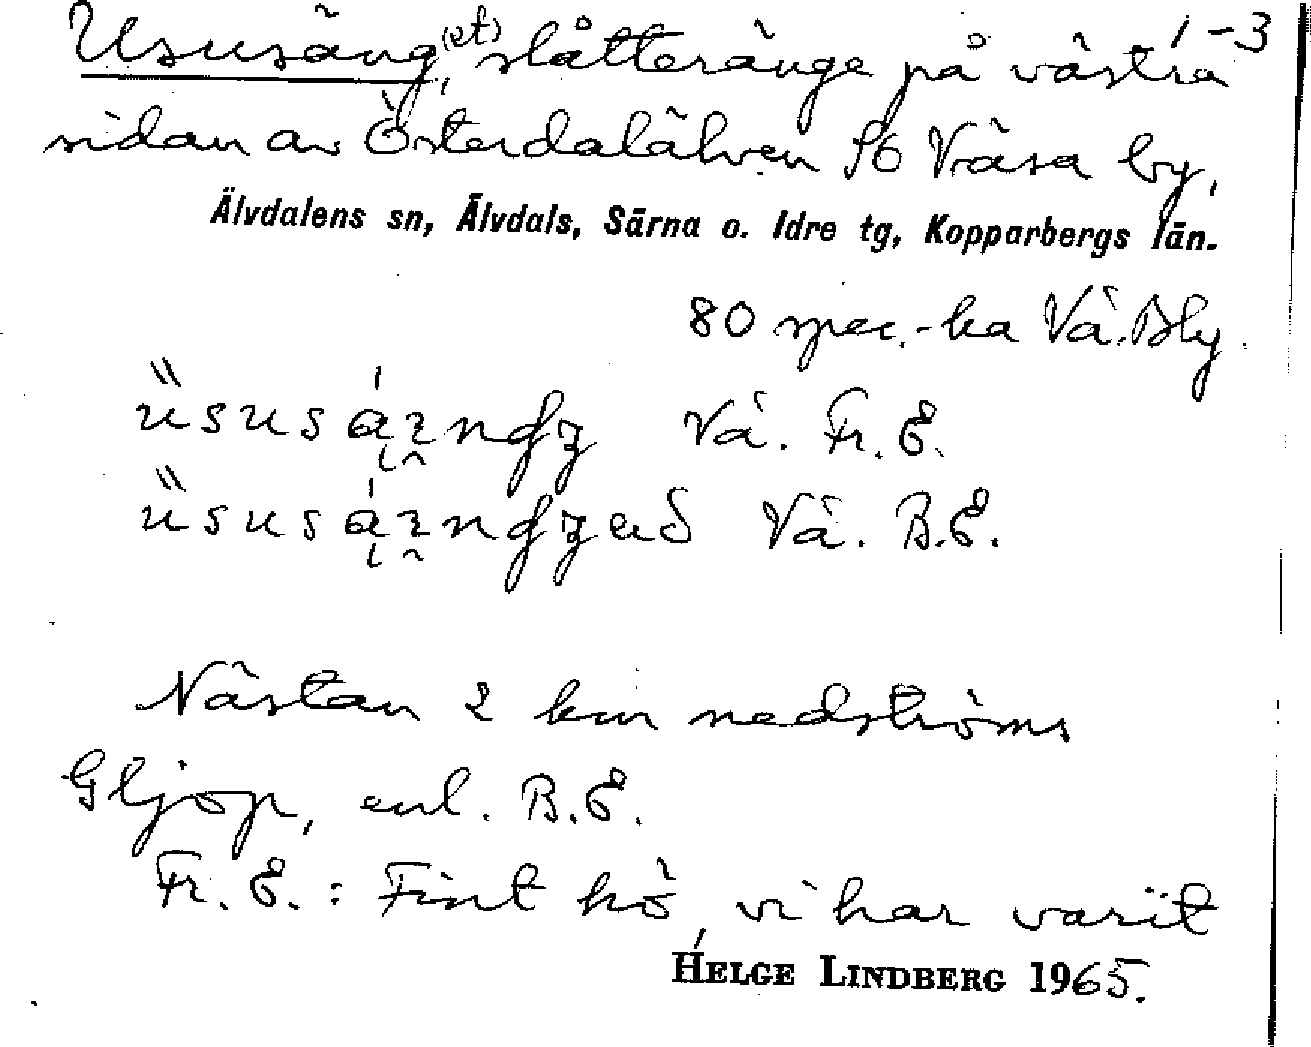 Ususäng(et), slåtteränge på västra 1-3
sidan av Österdalälven SÖ Våsa by,
Älvdalens sn, Älvdals, Särna o. Idre tg, Kopparbergs län.
80 spec.-ka Vå.Bly.
Vå. Fr. E.
Vå. B.E.
Nästan 2 km nedströms
Gljop, enl. B.E.
Fr. E.: Fint hö, vi har varit
HELGE LINDBERG 1965.